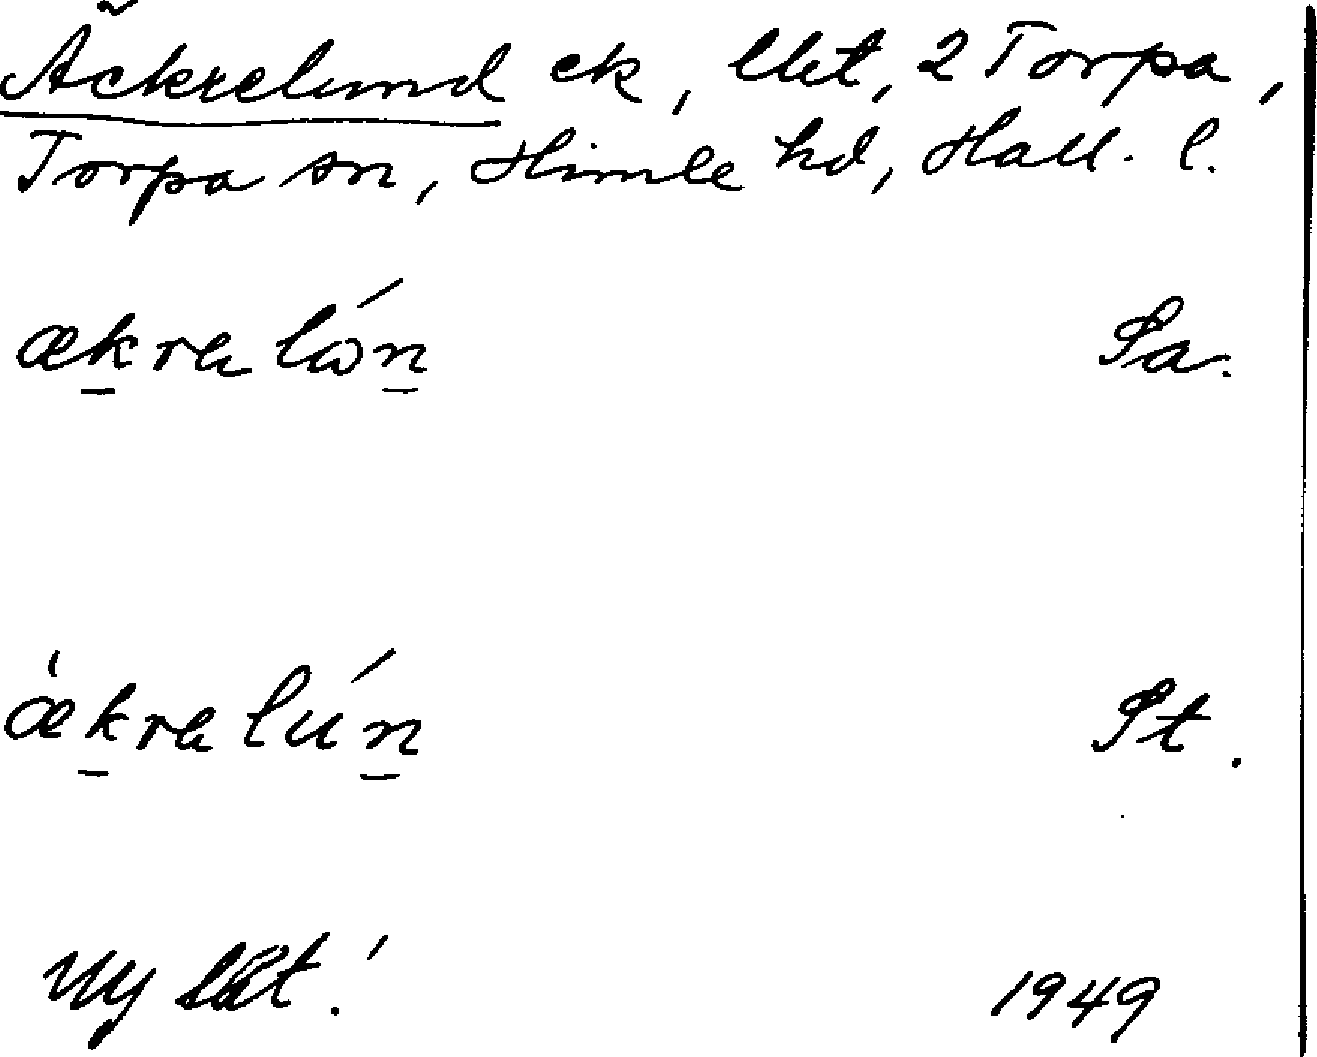 Äckrelund ek, lht, 2 Torpa,
Torpa sn, Himle hd, Hall. l.
ækra lón Sa.
ǽkra lún St.
Ny lht! 1949